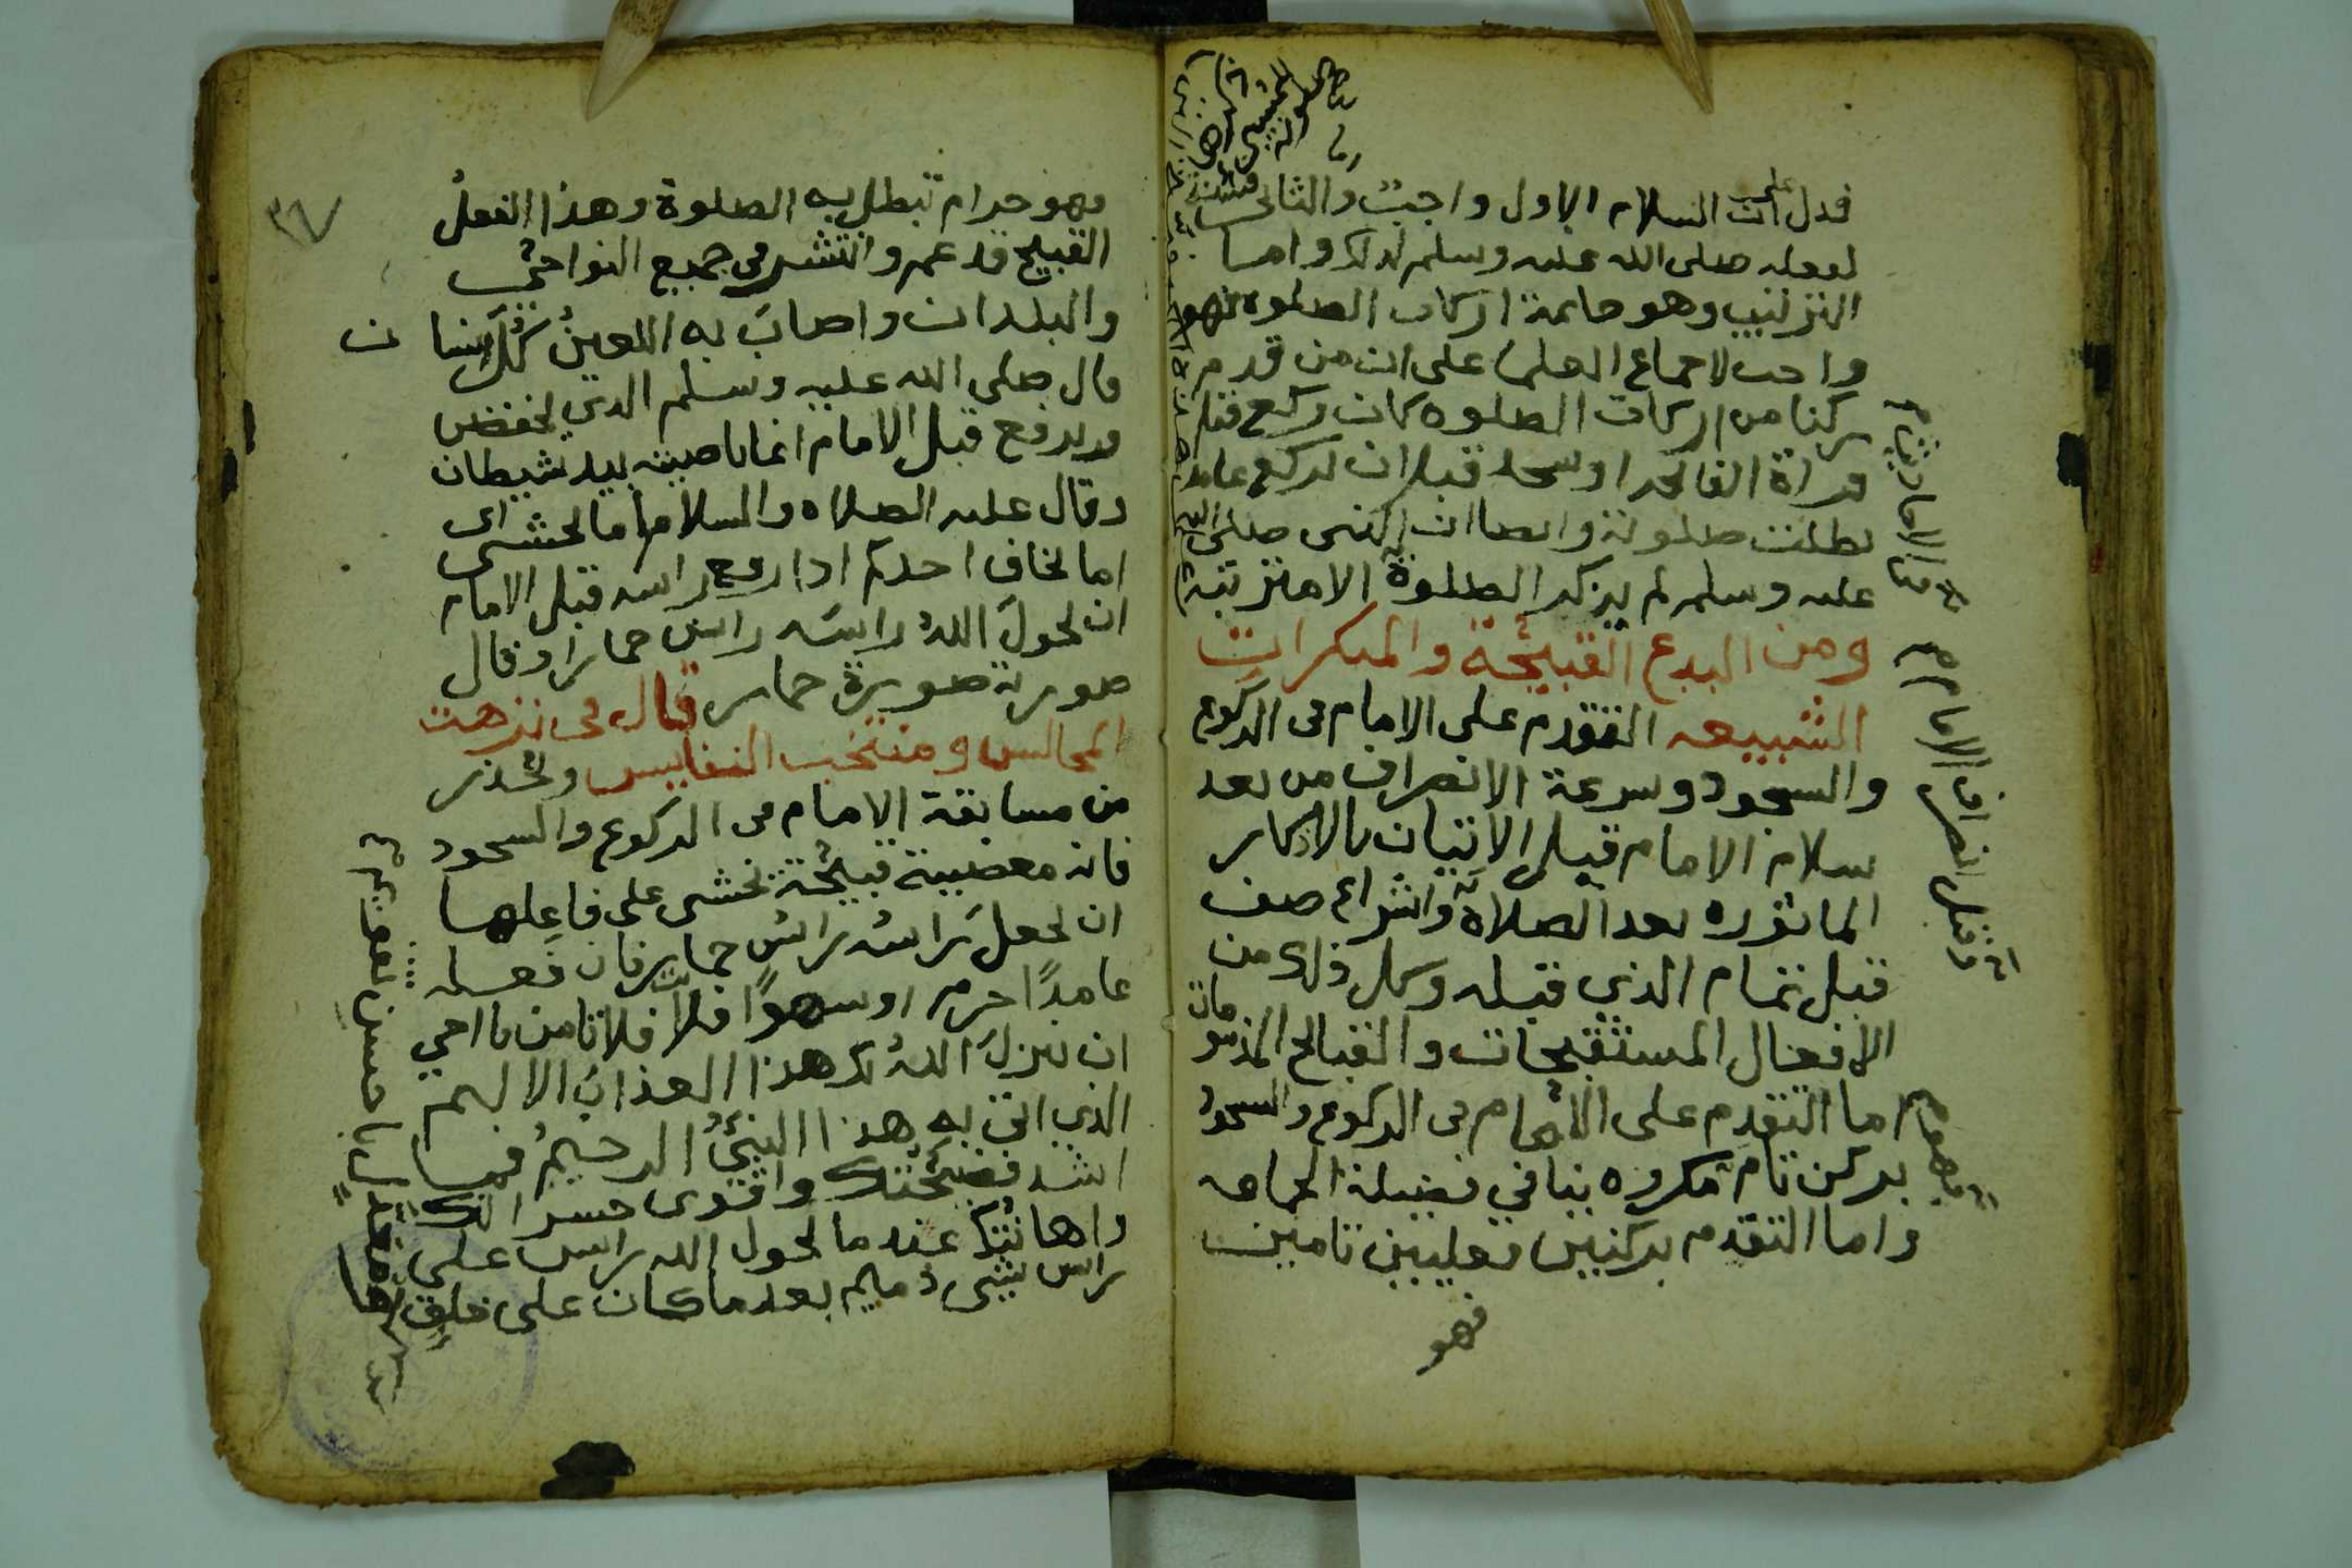 فدل على ان السلام الاول واجب والثاني سنة
لفعله صلى الله عليه وسلم لذلك واما
الترتيب وهو خاتمة اركان الصلوة فهو
واجب لاجماع العلما على ان من قدم
ركنا من اركان الصلوه كان ركع قبل
قراة الفاتحه او سجد قبل ان يركع عامدا
بطلت صلوته وايضا ان النبى صلى الله
عليه وسلم لم يذكر الصلوة الا مترتبة
ومن البدع القبيحة والمنكرات
الشبيعه التقدم على الامام فى الركوع
والسجود وسرعة الانصراف من بعد
سلام الامام قبل الاتيان بالاذكار
الماثوره بعد الصلاة وانشاء صف
قبل تمام الذي قبله وكل ذلك من
الافعال المستقبحات والقبائح المذمومات
اما التقدم على الامام فى الركوع والسجود
بركن تام مكروه ينافي فضيلة الجماعه
واما التقدم بركنين فعليين تامين
فهو
من الاحاديث
وقبل انصراف الامام
٣٦
فهو حرام تبطل به الصلوة وهذا الفعل
القبيح قد عم وانتشر فى جميع النواحي
والبلدان واصاب به اللعين كل انسان
قال صلى الله عليه وسلم الذي يخفض
ويرفع قبل الامام انما ناصيته بيد شيطان
وقال عليه الصلاه والسلام اما يخشى اى
اما يخاف احدكم اذا رفع راسه قبل الامام
ان يحول الله راسه راس حمار او قال
صورته صورة حمار قال فى نزهت
المجالس ومنتخب النفايس وليحذر
من مسابقة الامام فى الركوع والسجود
فانه معصية قبيحة يخشى على فاعلها
ان يجعل راسه راس حمار فان فعله
عامدًا حرم او سهوًا فلا فلا تامن يا اخي
ان ينزل الله بك هذا العذاب الاليم
الذي اتى به هذا النبي الرحيم فما
اشد فضيحتك واقوى خسرانك
واهانتك عندما يحول الله راس على
راس شي ذميم بعد ما كان على خلق